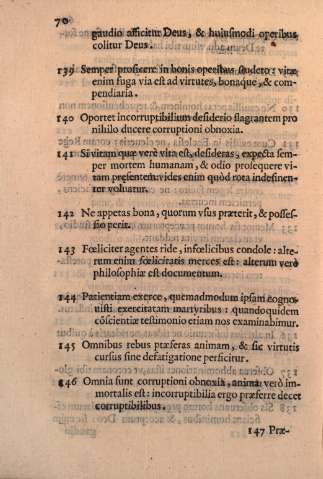 70
gaudio afficitur Deus, & huiusmodi operibus
colitur Deus.
139 Semper proficere in bonis operibus studeto: vitæ
enim fuga via est ad virtutes, bonaque, & com-
pendiaria.
140 Oportet incorruptibilium desiderio flagrantem pro
nihilo ducere corruptioni obnoxia.
141 Si vitam quæ verè vita est, desideras, expecta sem-
per mortem humanam, & odio prosequere vi-
tam presentem: vides enim quòd rota indesinen-
ter voluatur.
142 Ne appetas bona, quorum vsus præterit, & posses-
sio perit.
143 Fœliciter agentes ride, infœlicibus condole: alte-
rum enim fœlicitatis merces est: alterum verò
philosophiæ est documentum.
144 Patientiam exerce, quemadmodum ipsam cogno-
uisti exercitatam martyribus: quandoquidem
cõscientiæ testimonio etiam nos examinabimur.
145 Omnibus rebus præferas animam, & sic virtutis
cursus sine defatigatione perficitur.
146 Omnia sunt corruptioni obnoxia, anima verò im-
mortalis est: incorruptibilia ergo præferre decet
corruptibilibus.
147 Præ-